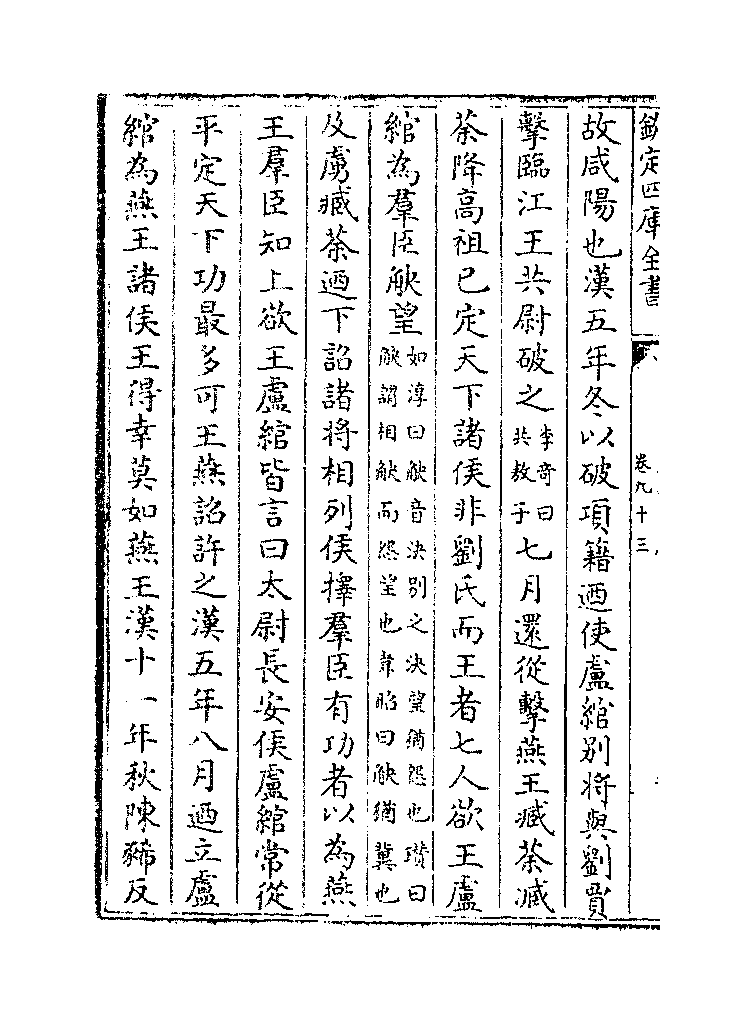 欽定四庫全書
卷九十三
故咸陽也漢五年冬以破項籍迺使盧綰別將與劉賈
擊臨江王共尉破之李竒曰共敖子七月還從擊燕王臧荼臧
荼降高祖已定天下諸侯非劉氏而王者七人欲王盧
綰為羣臣觖望如淳曰觖音決別之決望猶怨也瓉曰觖謂相觖而怨望也韋昭曰觖猶冀也
及虜臧荼迺下詔諸將相列侯擇羣臣有功者以為燕
王羣臣知上欲王盧綰皆言曰太尉長安侯盧綰常從
平定天下功最多可王燕詔許之漢五年八月迺立盧
綰為燕王諸侯王得幸莫如燕王漢十一年秋陳豨反